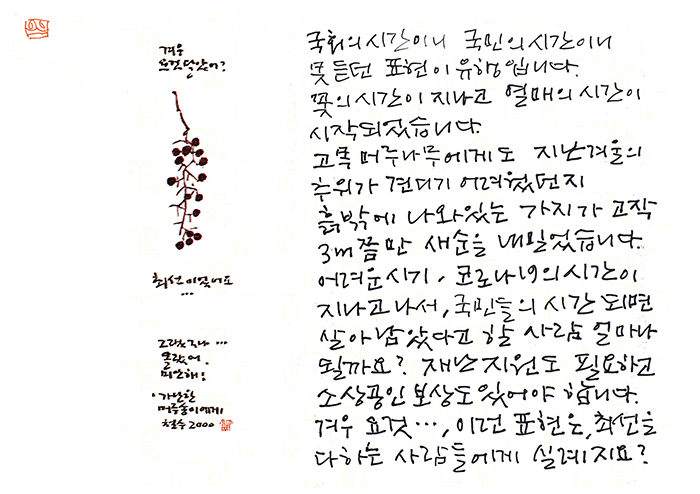 겨우
요것 달았어?
최선이었어요
...
그랬구나...
몰랐어.
미안해!
가난한
머루송이에게
철수 2000
국회의 시간이니 국민의 시간이니
못 듣던 표현이 유행입니다.
꽃의 시간이 지나고 열매의 시간이
시작되었습니다.
고목 머루나무에게도 지난겨울의
추위가 견디기 어려웠던지
흙밖에 나와있는 가지가 고작
3m쯤만 새순을 내밀었습니다.
어려운시기, 코로나19의 시간이
지나고 나서, 국민들의 시간 되면
살아남았다고 할 사람 얼마나
될까요? 재난지원도 필요하고
소상공인 보상도 있어야 합니다.
겨우 요것..., 이런 표현은, 최선을
다하는 사람들에게 실례지요?